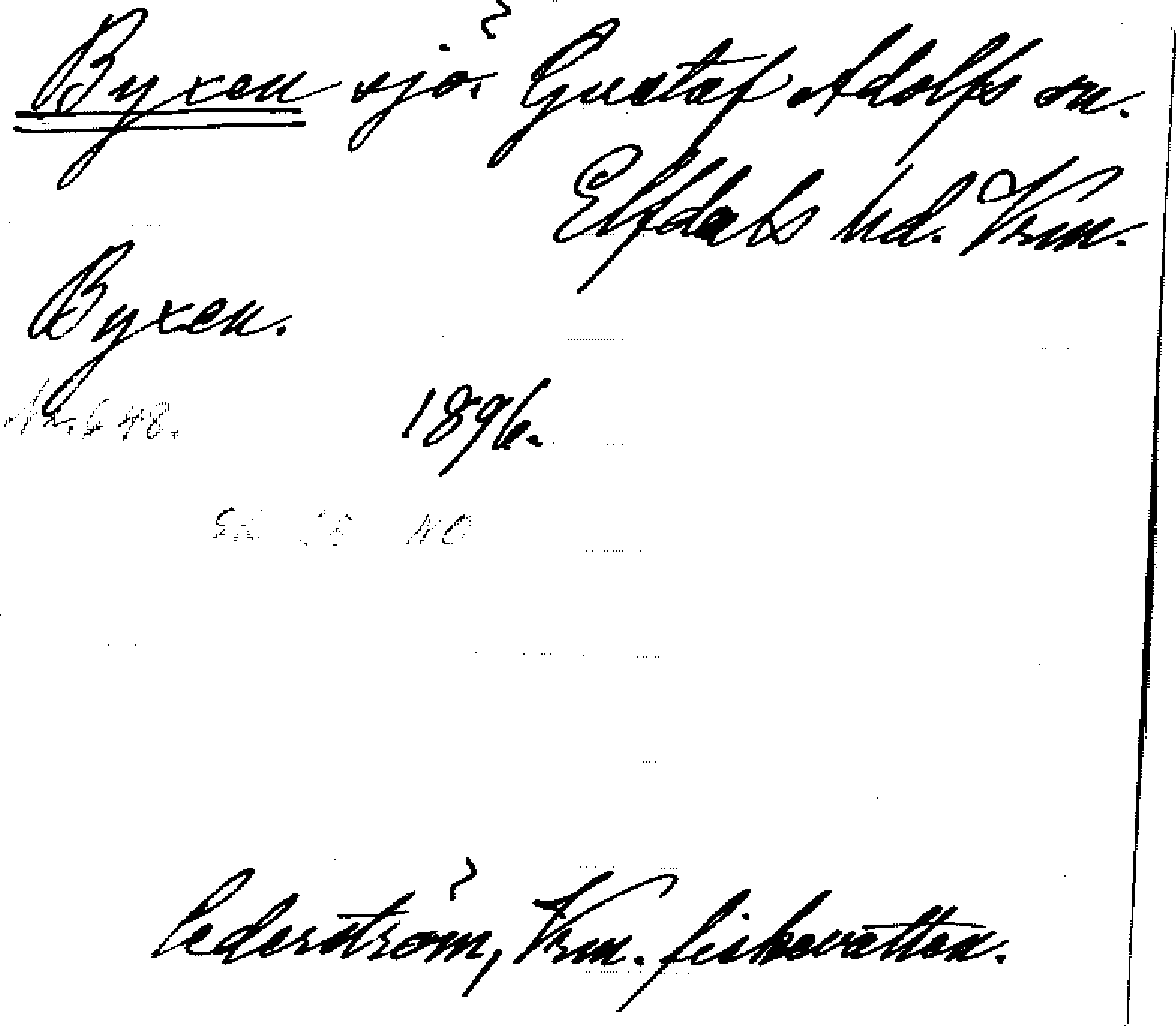 Byxen sjö. Gustaf Adolfs sn.
Elfdals hd. Vrm.
Byxen.
Nr. 648.
1896.
40
Cederström, Vrm. fiskevatten.